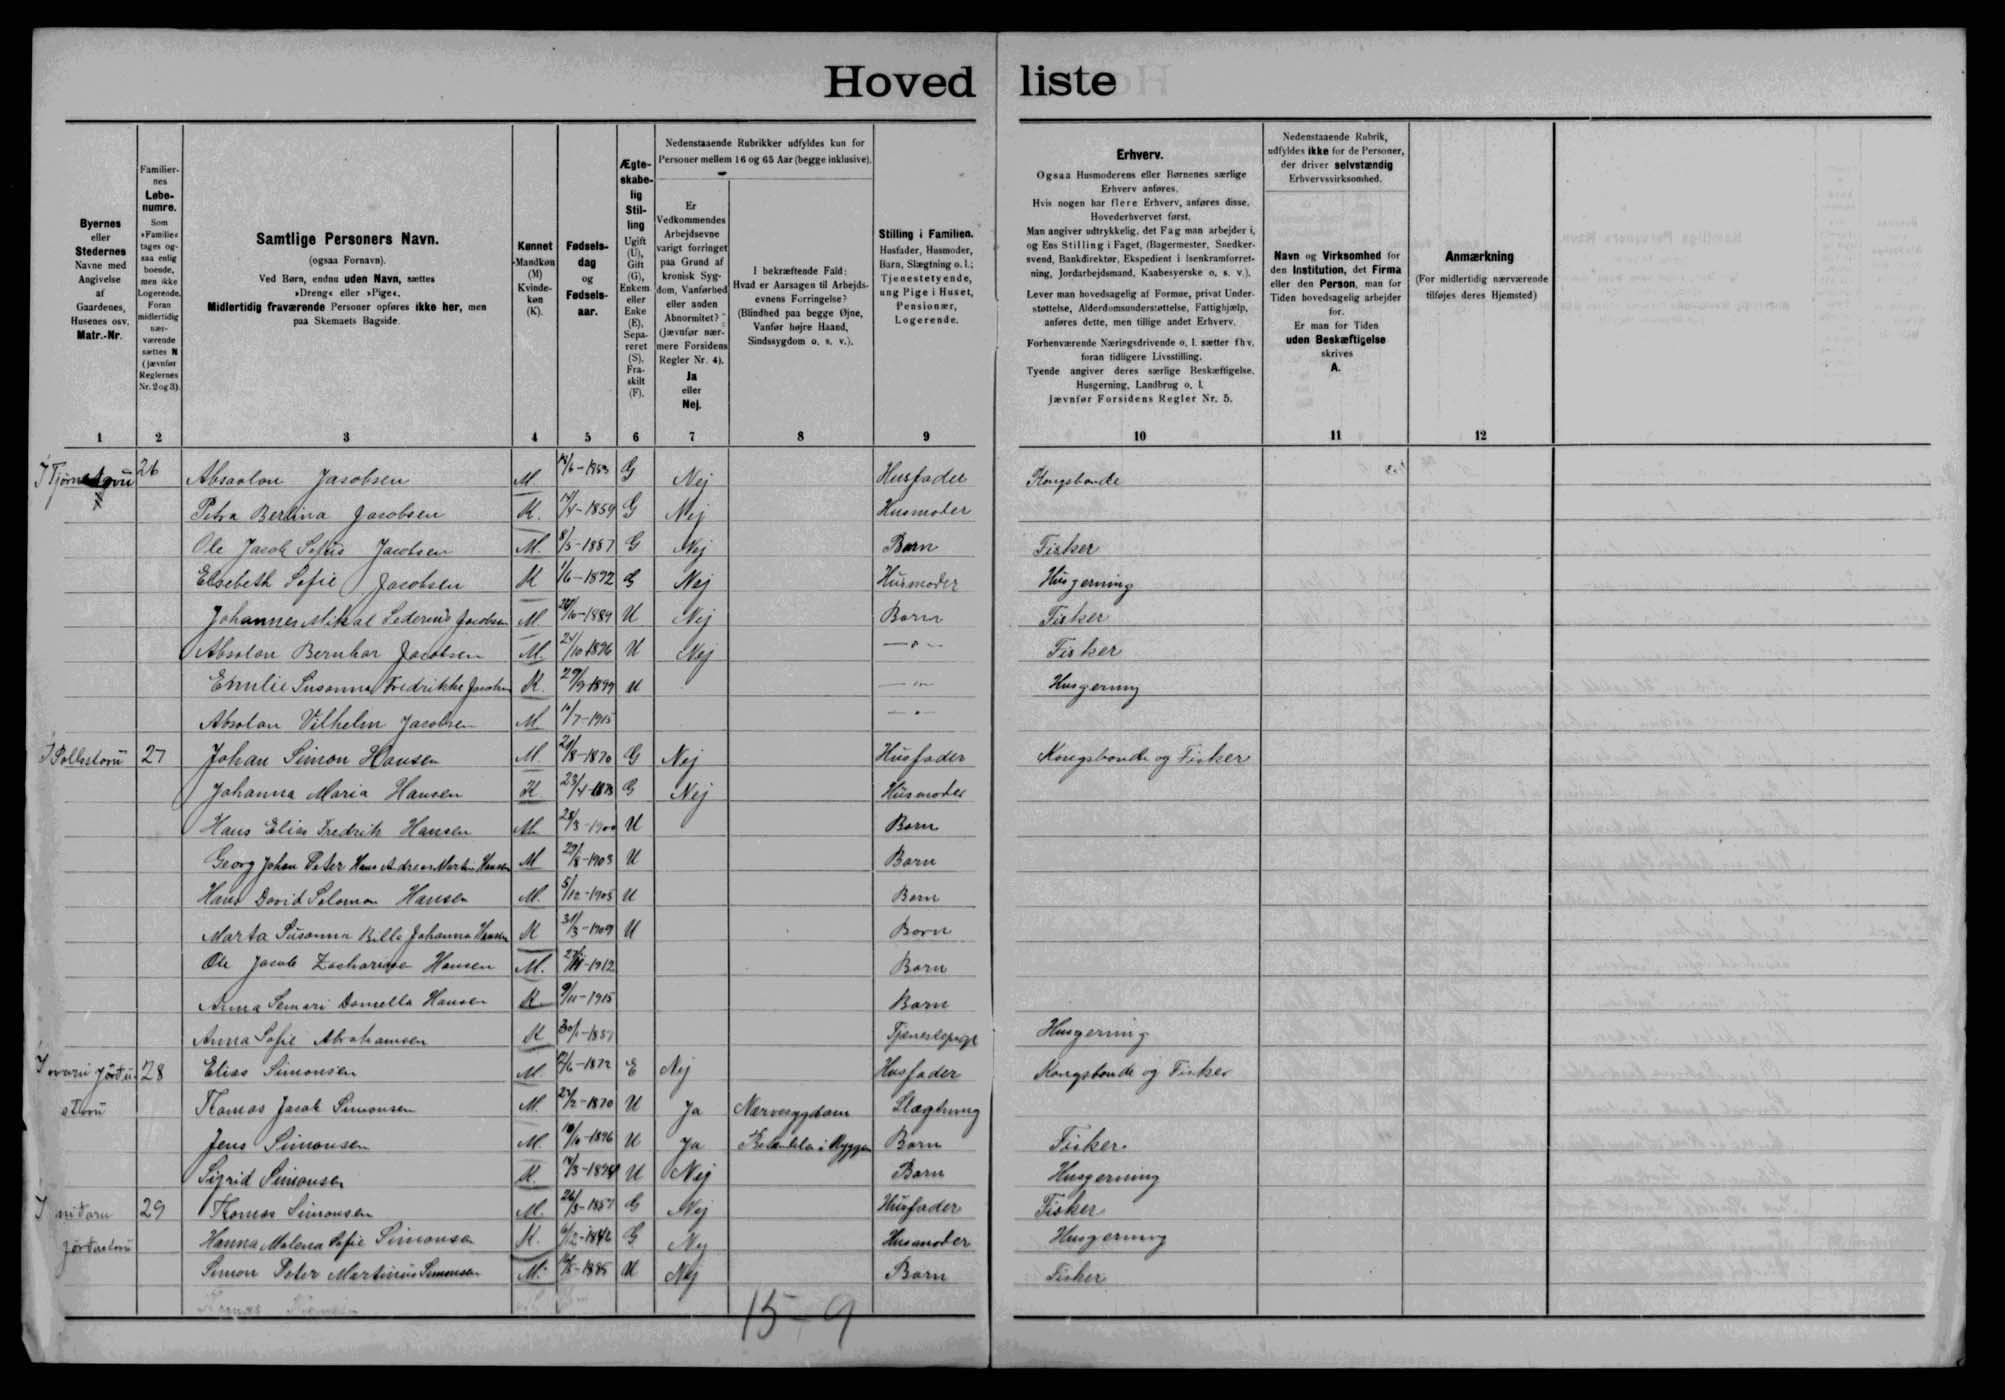 Hoved liste
Byernes
eller
Stedernes
Navne med
Angivelse
af
Gaardenes,
Husenes osv.
Matr.-Nr.
Familier-
nes
Løbe-
numre.
Som
»Familie«
tages og-
saa enlig
boende,
men ikke
Logerende.
Foran
midlertidig
nær-
værende
sættes N
(jævnfør
Reglernes
Nr. 2 og 3).
Samtlige Personers Navn.
(ogsaa Fornavn).
Ved Børn, endnu uden Navn, sættes
»Dreng« eller »Pige«.
Midlertidig fraværende Personer opføres ikke her, men
paa Skemaets Bagside.
Kønnet
Mandkøn
(M)
Kvinde-
køn
(K).
Fødsels-
dag
og
Fødsels-
aar.
Ægte-
skabe-
lig
Stil-
ling
Ugift
(U),
Gift
(G),
Enkem.
eller
Enke
(E),
Sepa-
reret
(S),
Fra-
skilt
(F).
Nedenstaaende Rubrikker udfyldes kun for
Personer mellem 16 og 65 Aar (begge inklusive).
Er
Vedkommendes
Arbejdsevne
varigt forringet
paa Grund af
kronisk Syg-
dom, Vanførhed
eller anden
Abnormitet?
(Jævnfør nær-
mere Forsidens
Regler Nr. 4).
Ja
eller
Nej.
I bekræftende Fald:
Hvad er Aarsagen til Arbejds-
evnens Forringelse?
(Blindhed paa begge Øjne,
Vanfør højre Haand,
Sindssygdom o. s. v.).
Stilling i Familien.
Husfader, Husmoder,
Barn, Slægtning o. l.;
Tjenestetyende,
ung Pige i Huset,
Pensionær,
Logerende.
Erhverv.
Ogsaa Husmoderens eller Børnenes særlige
Erhverv anføres.
Hvis nogen har flere Erhverv, anføres disse,
Hovederhvervet først.
Man angiver udtrykkelig, det Fag man arbejder i,
og Ens Stilling i Faget, (Bagermester, Snedker-
svend, Bankdirektør, Ekspedient i Isenkramforret-
ning, Jordarbejdsmand, Kaabesyerske o. s. v.).
Lever man hovedsagelig af Formue, privat Under-
støttelse, Alderdomsunderstøttelse, Fattighjælp,
anføres dette, men tillige andet Erhverv.
Forhenværende Næringsdrivende o. l. sætter fhv.
foran tidligere Livsstilling.
Tyende angiver deres særlige Beskæftigelse,
Husgerning, Landbrug o. l.
Jævnfør Forsidens Regler Nr. 5.
Nedenstaaende Rubrik,
udfyldes ikke for de Personer,
der driver selvstændig
Erhvervsvirksomhed.
Navn og Virksomhed for
den Institution, det Firma
eller den Person, man for
Tiden hovedsagelig arbejder
for.
Er man for Tiden
uden Beskæftigelse
skrives
A.
Anmærkning
(For midlertidig nærværende
tilføjes deres Hjemsted)
1 2 3 4 5 6 7 8 9 10 11 12
26 Absaolon Jacobsen M G Nej Husfader Kongsbonde
Petra Berlina Jacobsen K. 1859 G Nej Husmoder
Ole Jacob Sofus Jacobsen M. 8/5-1887 G Nej Barn Fisker
Elsebeth Sofie Jacobsen K 1/6-1892 G Nej Husmoder Husgerning
Johannes Mikal Sederius Jacobsen M. 1889 U Nej Barn Fisker
Absolon Bernhar Jacobsen M. 24/10 1896 U Nej —"— Fisker
Emilie Susanna Fredrikke Jacobsen K. 29/9-1899 U —"— Husgerning
Absolon Vilhelm Jacobsen M 7-1915 —"—
27 Johan Simon Hansen M. 8-1870 G Nej Husfader Kongsbonde og Fisker
Johanna Maria Hansen K. 23/4-1873 G Nej Husmoder
Hans Elias Fredrik Hansen M. 3-1900 U Barn
Georg Johan Peter Hans Andreas Martin Hansen M 1903 U Barn
Hans David Solomon Hansen M. 5/12-1905 U Barn
Marta Susanna Johanna Hansen K 31/3-1909 U Barn
Ole Jacob Zachariase Hansen M. 1912 Barn
Anna Semari Domella Hansen K 9/11-1915 Barn
Anna Sofie Abrahamsen K Tjenestepige Husgerning
28 Elias Simonsen M. 6-1872 E Nej Husfader Kongsbonde og Fisker
Thomas Jacob Simonsen M. 2-1870 U Ja Nervesygdom Slægtning
Jens Simonsen M. 1896 U Ja i Ryggen Barn Fisker
Sigrid Simonsen K. U Nej Barn Husgerning
29 Thomas Simonsen M. 26/3-1857 G Nej Husfader Fisker
Hanna Malena Sofie Simonsen K. 1846 G Nej Husmoder Husgerning
Simon Peter Martinus Simonsen M. 1885 U Nej Barn Fisker
15-9